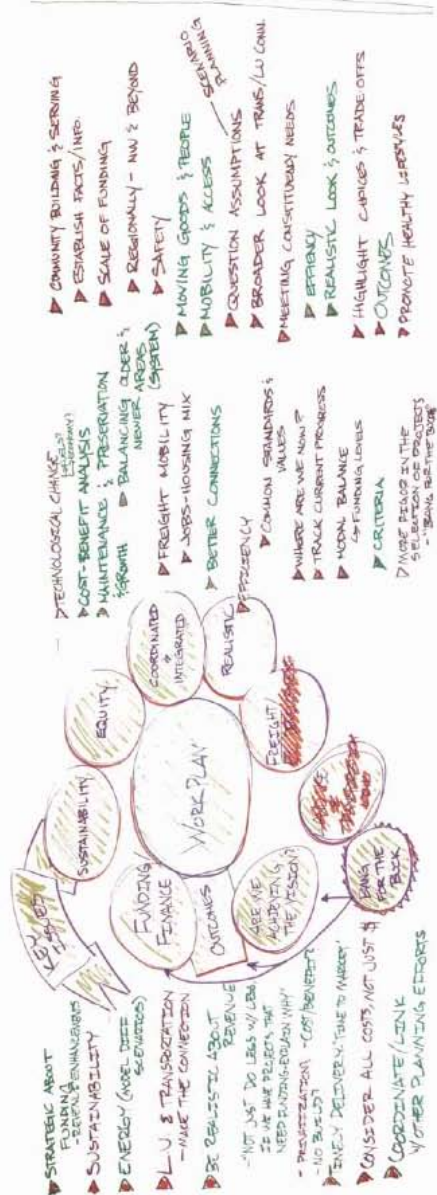 KEY ISSUES
▷ STRATEGIC ABOUT
FUNDING
▷ SUSTAINABILITY
▷ ENERGY (MODEL DIFF
SCENARIOS)
▷ L.U. & TRANSPORTATION
- MAKE THE CONNECTION
▷ BE REALISTIC ABOUT
REVENUE
- "NOT JUST DO LEGS W/ LEGS
IF WE HAVE PROJECTS THAT
NEED FUNDING-EXPLAIN WHY"
- PRIVATIZATION - "COST/BENEFIT?
- NO BUILD?
▷ TIMELY DELIVERY. "TIME TO MARKET"
▷ CONSIDER ALL COSTS, NOT JUST $
▷ COORDINATE/LINK
W/OTHER PLANNING EFFORTS
SUSTAINABILITY
EQUITY
COORDINATED
&
INTEGRATED
REALISTIC
FREIGHT
WORK PLAN
FUNDING/
FINANCE
OUTCOMES
ARE WE
ACHIEVING
THE VISION?
BANG
FOR THE
BUCK
▷ TECHNOLOGICAL CHANGE
▷ COST-BENEFIT ANALYSIS
▷ MAINTENANCE & PRESERVATION
& GROWTH
▷ BALANCING OLDER &
NEWER AREAS
(SYSTEM)
▷ FREIGHT MOBILITY
▷ JOBS-HOUSING MIX
▷ BETTER CONNECTIONS
▷ EFFICIENCY
▷ COMMON STANDARDS &
VALUES
▷ WHERE ARE WE NOW?
▷ TRACK CURRENT PROGRESS
▷ MODAL BALANCE
↳ FUNDING LEVELS
▷ CRITERIA
▷ MORE RIGOR IN THE
SELECTION OF PROJECTS
- "BANG FOR THE BUCK"
▷ COMMUNITY BUILDING & SERVING
▷ ESTABLISH FACTS/INFO.
▷ SCALE OF FUNDING
▷ REGIONALLY - NW & BEYOND
▷ SAFETY
▷ MOVING GOODS & PEOPLE
▷ MOBILITY & ACCESS
SCENARIO
PLANNING
▷ QUESTION ASSUMPTIONS
▷ BROADER LOOK AT TRANS/LU CONN.
▷ MEETING CONSTITUENCY NEEDS
▷ EFFIENCY
▷ REALISTIC LOOK & OUTCOMES
▷ HIGHLIGHT CHOICES & TRADE-OFFS
▷ OUTCOMES
▷ PROMOTE HEALTHY LIFESTYLES